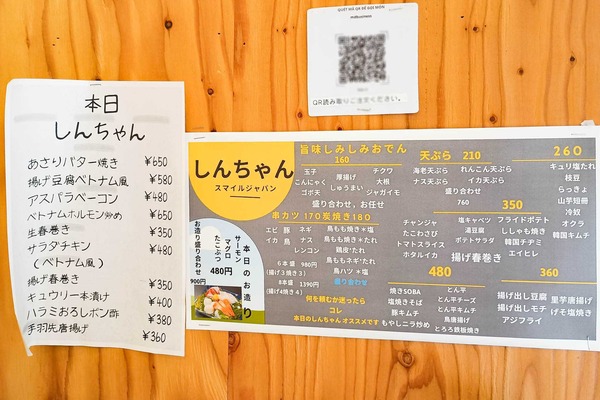 QUÉT MÃ QR ĐỂ GỌI MÓN
QR読み取りご注文ください。
本日
しんちゃん
あさりバター焼き ¥650
揚げ豆腐ベトナム風 ¥580
アスパラベーコン ¥480
ベトナムホルモン炒め ¥650
生春巻き ¥350
サラダチキン ¥480
(ベトナム風)
揚げ春巻き ¥350
キュウリ一本漬け ¥400
ハラミおろしポン酢 ¥380
手羽先唐揚げ ¥360
しんちゃん
スマイルジャパン
本日のお造り
サーモン
マグロ
たこぶつ
480円
お造り盛り合わせ
900円
旨味しみしみおでん
160
玉子 厚揚げ チクワ
こんにゃく しゅうまい 大根
ゴボ天 ジャガイモ
盛り合わせ、お任せ
串カツ 170 炭焼き180
エビ 豚 ネギ 鳥もも焼き*塩
イカ 鳥 ナス 鳥もも焼き*たれ
レンコン 鶏皮*たれ
鳥ももネギ*たれ
鳥ハツ *塩
6本盛 980円
(揚げ3焼き3)
8本盛 1390円
(揚げ4焼き4)
盛り合わせ
何を頼むか迷ったら
コレ
本日のしんちゃん オススメです
天ぷら 210
海老天ぷら れんこん天ぷら
ナス天ぷら イカ天ぷら
盛り合わせ
760
260
キュリ塩たれ
枝豆
らっきょ
山芋短冊
冷奴
オクラ
韓国キムチ
350
チャンジャ 塩キャベツ フライドポテト
たこわさび 湯豆腐 ししゃも焼き
トマトスライス ポテトサラダ 韓国チヂミ
ホタルイカ 揚げ春巻き エイヒレ
480
焼きSOBA とん平
塩焼きそば とん平チーズ
豚キムチ とん平キムチ
もやしニラ炒め 鳥唐揚げ
とろろ鉄板焼き
360
揚げ出し豆腐 里芋唐揚げ
揚げ出しモチ げそ塩焼き
アジフライ